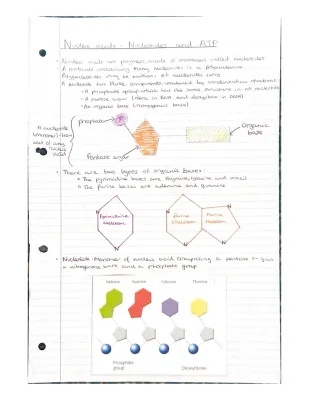 Nucleic acids - Nucleotides and ATP
• Nucleic acids are polymers made of monomers called nucleotides
A molecule containing many nucleotides is a Polynucleotide
A nucleotide has three components, combined by condensation reactions:
• A phosphate group, which has the same structure in all nucleotides
• A pentose sugar (ribose in RNA and deoxyribose in DNA)
• An organic base (nitrogenous base)
phosphate
Organic base
A nucleotide
nucleic acid
Pentose sugar
• There are two types of organic bases:
• The pyrimidine bases are thymine, cytosine and uracil
• The purine bases are adenine and guanine
N
N
Pyrimidine skeleton
N
N
Purine skeleton
N
N
• Nucleotide - Monomer of nucleic acid comprising a pentose sugar
a nitrogenous base and a phosphate group
Adenine Guanine Cytosine Thymine
Phosphate group
Deoxyribose